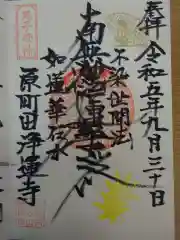 奉拝
令和五年九月三十日
不染世間法
南無妙法蓮華経
如蓮華在水
原町田浄運寺